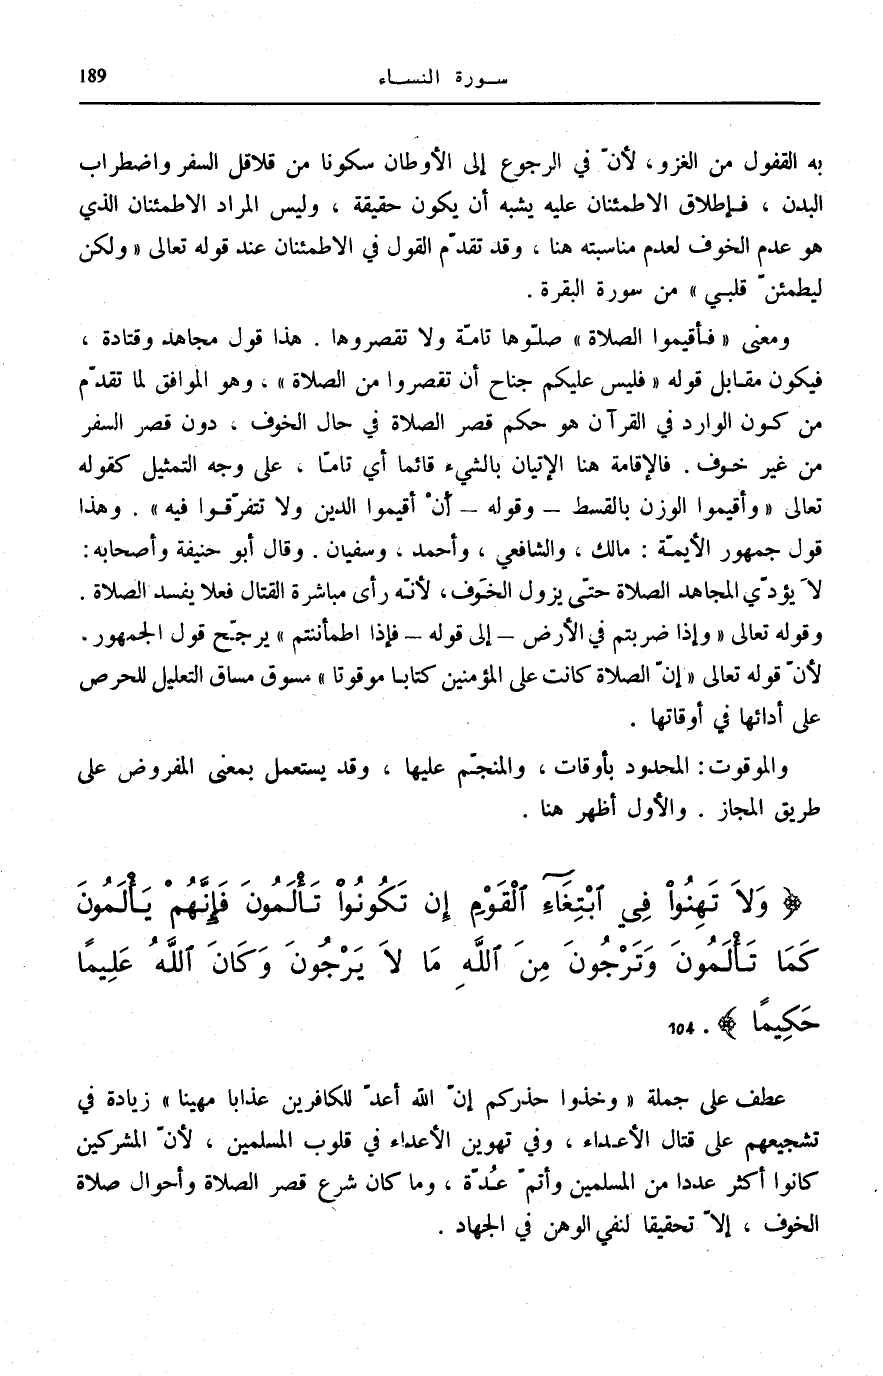 189
سورة النساء
به القفول من الغزو، لأنّ في الرجوع إلى الأوطان سكونا من قلاقل السفر واضطراب
البدن ، فإطلاق الاطمئنان عليه يشبه أن يكون حقيقة ، وليس المراد الاطمئنان الذي
هو عدم الخوف لعدم مناسبته هنا ، وقد تقدّم القول في الاطمئنان عند قوله تعالى « ولكن
ليطمئنّ قلبي » من سورة البقرة .
ومعنى « فأقيموا الصلاة » صلّوها تامّة ولا تقصروها . هذا قول مجاهد وقتادة ،
فيكون مقابل قوله « فليس عليكم جناح أن تقصروا من الصلاة » ، وهو الموافق لما تقدّم
من كون الوارد في القرآن هو حكم قصر الصلاة في حال الخوف ، دون قصر السفر
من غير خوف . فالإقامة هنا الإتيان بالشيء قائما أي تامّا ، على وجه التمثيل كقوله
تعالى « وأقيموا الوزن بالقسط – وقوله – أنْ أقيموا الدين ولا تتفرّقوا فيه » . وهذا
قول جمهور الأيمّة : مالك ، والشافعي ، وأحمد ، وسفيان . وقال أبو حنيفة وأصحابه :
لا يؤدّي المجاهد الصلاة حتّى يزول الخوف ، لأنّه رأى مباشرة القتال فعلا يفسد الصلاة .
وقوله تعالى « وإذا ضربتم في الأرض – إلى قوله – فإذا اطمأننتم » يرجّح قول الجمهور .
لأنّ قوله تعالى « إنّ الصلاة كانت على المؤمنين كتابا موقوتا » مسوق مساق التعليل للحرص
على أدائها في أوقاتها .
والموقوت : المحدود بأوقات ، والمنجّم عليها ، وقد يستعمل بمعنى المفروض على
طريق المجاز . والأول أظهر هنا .
﴿ وَلَا تَهِنُواْ فِي ٱبْتِغَآءِ ٱلْقَوْمِ إِن تَكُونُواْ تَأْلَمُونَ فَإِنَّهُمْ يَأْلَمُونَ
كَمَا تَأْلَمُونَ وَتَرْجُونَ مِنَ ٱللَّهِ مَا لَا يَرْجُونَ وَكَانَ ٱللَّهُ عَلِيمًا
حَكِيمًا ﴾ . 104
عطف على جملة « وخذوا حذركم إنّ الله أعدّ للكافرين عذابا مهينا » زيادة في
تشجيعهم على قتال الأعداء ، وفي تهوين الأعداء في قلوب المسلمين ، لأنّ المشركين
كانوا أكثر عددا من المسلمين وأتمّ عُدّة ، وما كان شرع قصر الصلاة وأحوال صلاة
الخوف ، إلاّ تحقيقا لنفي الوهن في الجهاد .